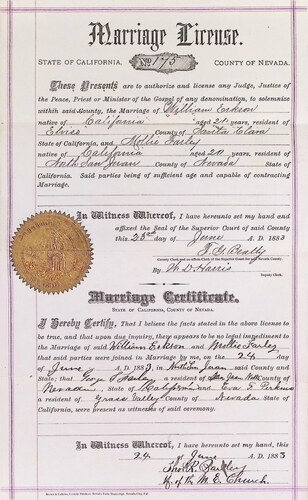 Marriage License.
STATE OF CALIFORNIA, No. 175 COUNTY OF NEVADA.
These Presents are to authorize and license any Judge, Justice
of the Peace, Priest or Minister of the Gospel of any denomination, to solemnize
within said County, the Marriage of William Erkson
native of California aged 21 years, resident of
Elviso County of Santa Clara
State of California, and Mollie Farley
native of California aged 20 years, resident of
North San Juan County of Nevada State of
California. Said parties being of sufficient age and capable of contracting
Marriage.
In Witness Whereof, I have hereunto set my hand and
affixed the Seal of the Superior Court of said County
this 23rd day of June A. D. 1883
T. G. Beatty
County Clerk and ex-officio Clerk of the Superior Court
By W. D. Harris
Deputy Clerk.
Marriage Certificate.
STATE OF CALIFORNIA, COUNTY OF NEVADA.
I Hereby Certify, That I believe the facts stated in the above license
to be true, and that upon due inquiry, there appears to be no legal impediment
to the Marriage of said William Erkson and Mollie Farley
that said parties were joined in Marriage by me, on the 24 day
of June A. D. 1883, in North San Juan said County and
State; that George a resident of San Juan County of
Nevada, State of California and Eva F. Perkins
a resident of Grass Valley County of Nevada State of
California, were present as witnesses of said ceremony.
In Witness Whereof, I have hereunto set my hand, this
24 June A. D. 1883
of the M. E. Church.